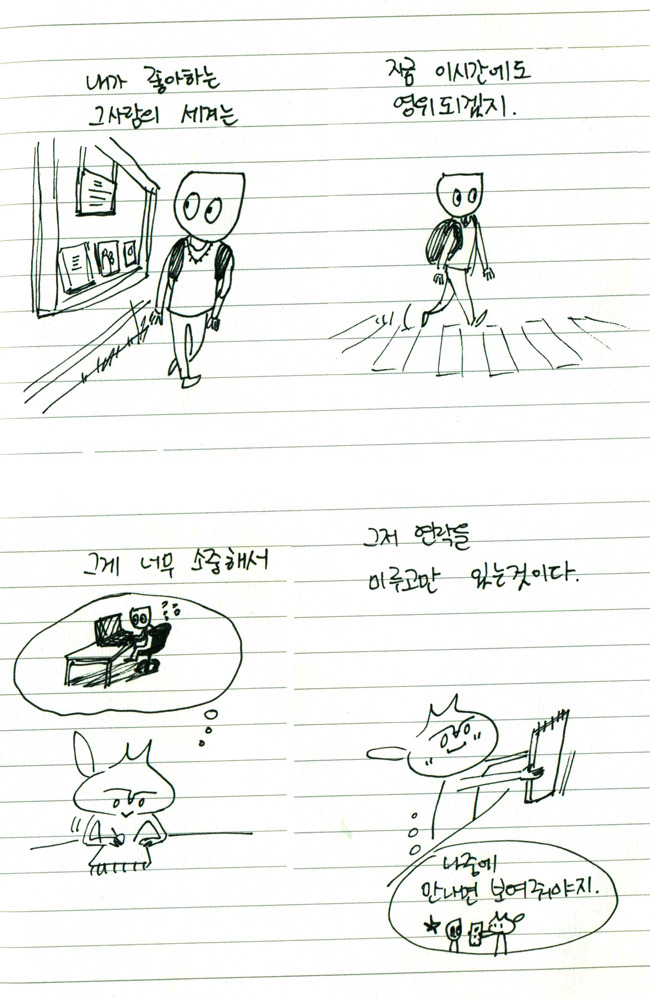 내가 좋아하는
그사람의 세계는
지금 이시간에도
영위되겠지.
그게 너무 소중해서
그저 연락을
미루고만 있는것이다.
나중에
만나면 보여줘야지.